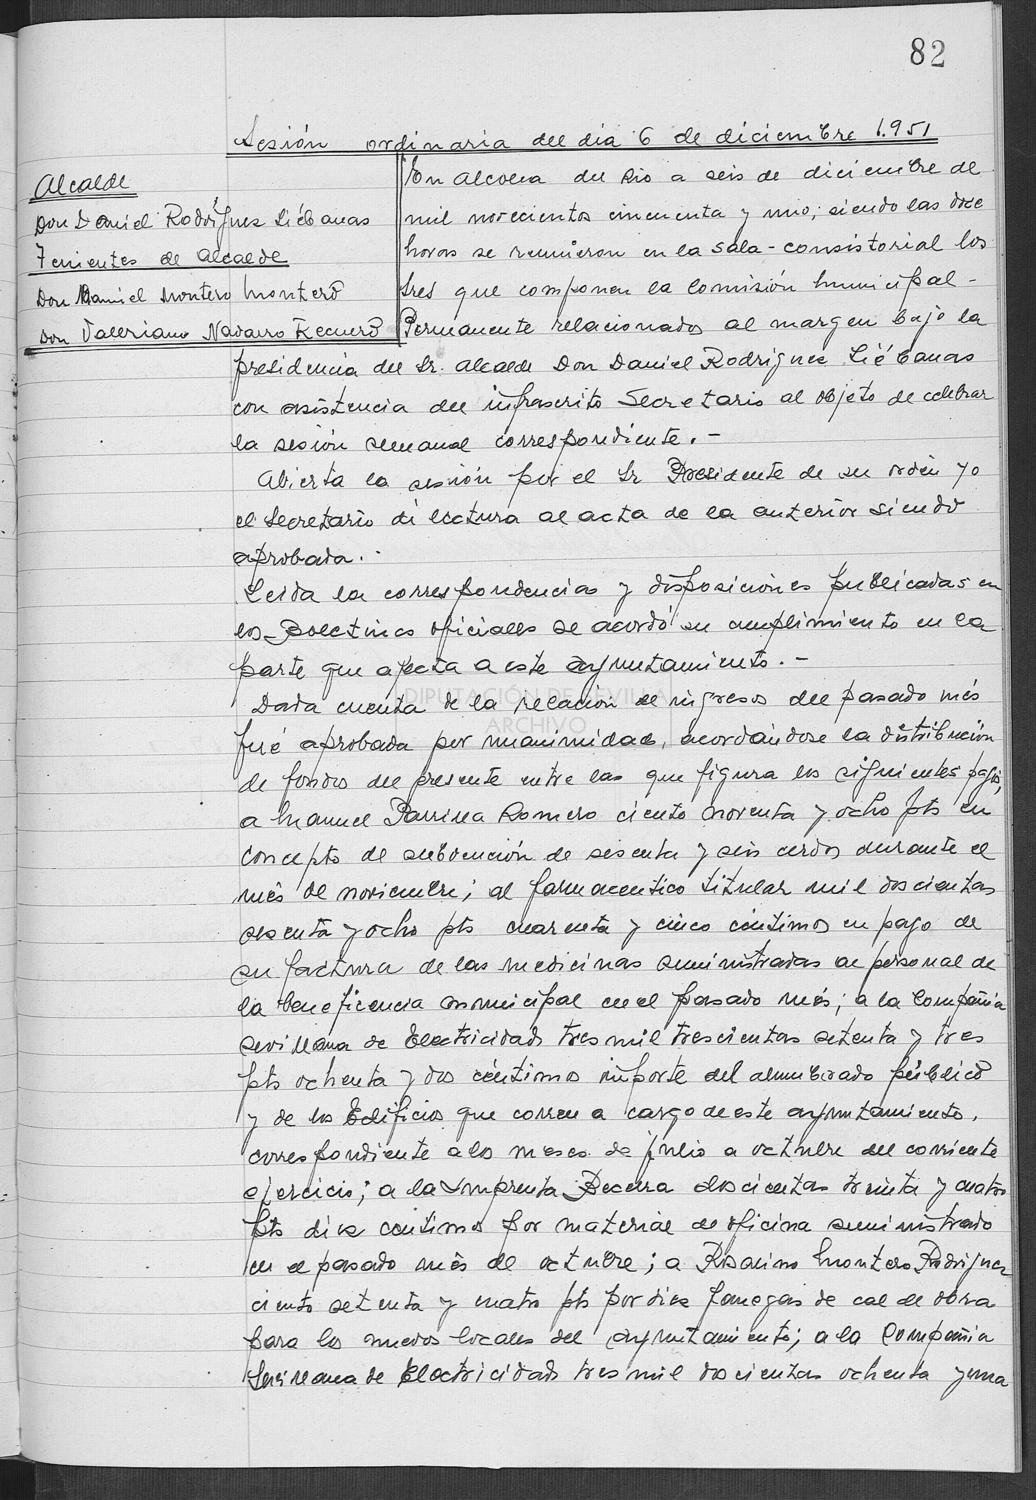 82
Sesión ordinaria del dia 6 de diciembre 1.951
Alcalde
Don Daniel Rodríguez Liébanas
Tenientes de Alcalde
Don Manuel Montero Montero
Don Valeriano Navarro Recuero
En Alcolea del Rio a seis de diciembre de
mil novecientos cincuenta y uno, siendo las doce
horas se reunieron en la sala-consistorial los
tres que componen la Comisión Municipal-
Permanente relacionados al margen bajo la
presidencia del Sr. Alcalde Don Daniel Rodriguez Liébanas
con asistencia del infrascrito Secretario al objeto de celebrar
la sesión semanal correspondiente.-
Abierta la sesión por el Sr. Presidente de su orden yo
el Secretario di lectura al acta de la anterior siendo
aprobada.-
Leida la correspondencias y disposiciones publicadas en
los Boletines oficiales se acordó su cumplimiento en la
parte que afecta a este ayuntamiento.-
DIPUTACIÓN DE SEVILLA
ARCHIVO
Dada cuenta de la relacion de ingresos del pasado més
fué aprobada por unanimidad, acordándose la distribución
de fondos del presente entre las que figura los siguientes pagos,
a Manuel Parrilla Romero ciento noventa y ocho pts en
concepto de subvención de sesenta y seis cerdos durante el
més de noviembre; al farmaceutico titular mil doscientas
sesenta y ocho pts cuarenta y cinco céntimos en pago de
su factura de las medicinas suministradas al personal de
la beneficencia municipal en el pasado més; a la Compañia
Sevillana de Electricidad tres mil trescientas setenta y tres
pts ochenta y dos céntimos importe del alumbrado público
y de los Edificios que corren a cargo de este ayuntamiento,
correspondiente a los meses de julio a octubre del corriente
ejercicio; a la Imprenta Becerra doscientas treinta y cuatro
pts diez centimos por material de oficina suministrado
en el pasado més de octubre; a Rosalino Montero Rodriguez
ciento setenta y cuatro pts por diez fanegas de cal de obra
para los nuevos locales del ayuntamiento; a la Compañia
Sevillana de Electricidad tres mil doscientas ochenta y una